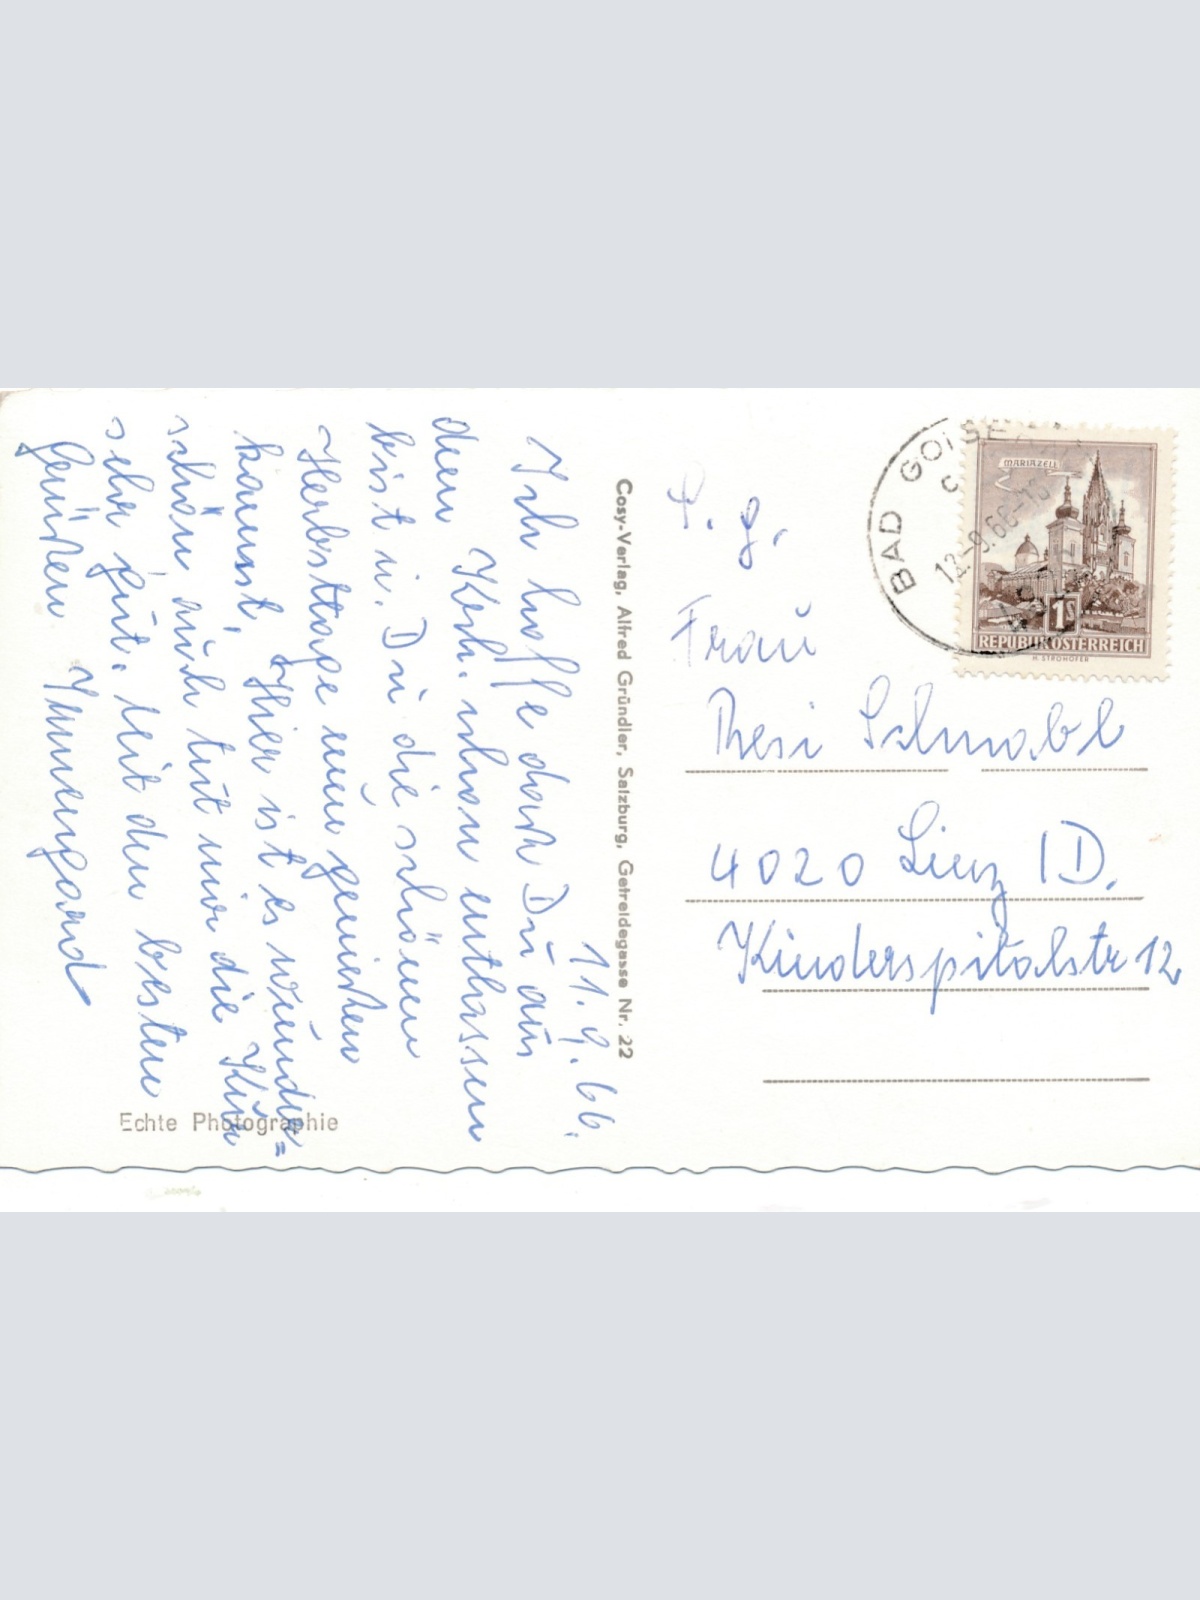 11.9.66.
Ich hoffe dass Du aus
dem Krkh. schon entlassen
bist u. Du die schönen
Herbsttage nun genießen
kannst. Hier ist es wunder=
schön, auch tut mir die Kur
sehr gut. Mit den besten
Grüßen Irmengard
Echte Photographie
Cosy-Verlag, Alfred Gründler, Salzburg, Getreidegasse Nr. 22
BAD GOISE
12.-9.66-18
MARIAZELL
1S
REPUBLIK ÖSTERREICH
H. STROHOFER
Frau
Resi Schnabl
4020 Linz /D.
Kinderspitalstr 12